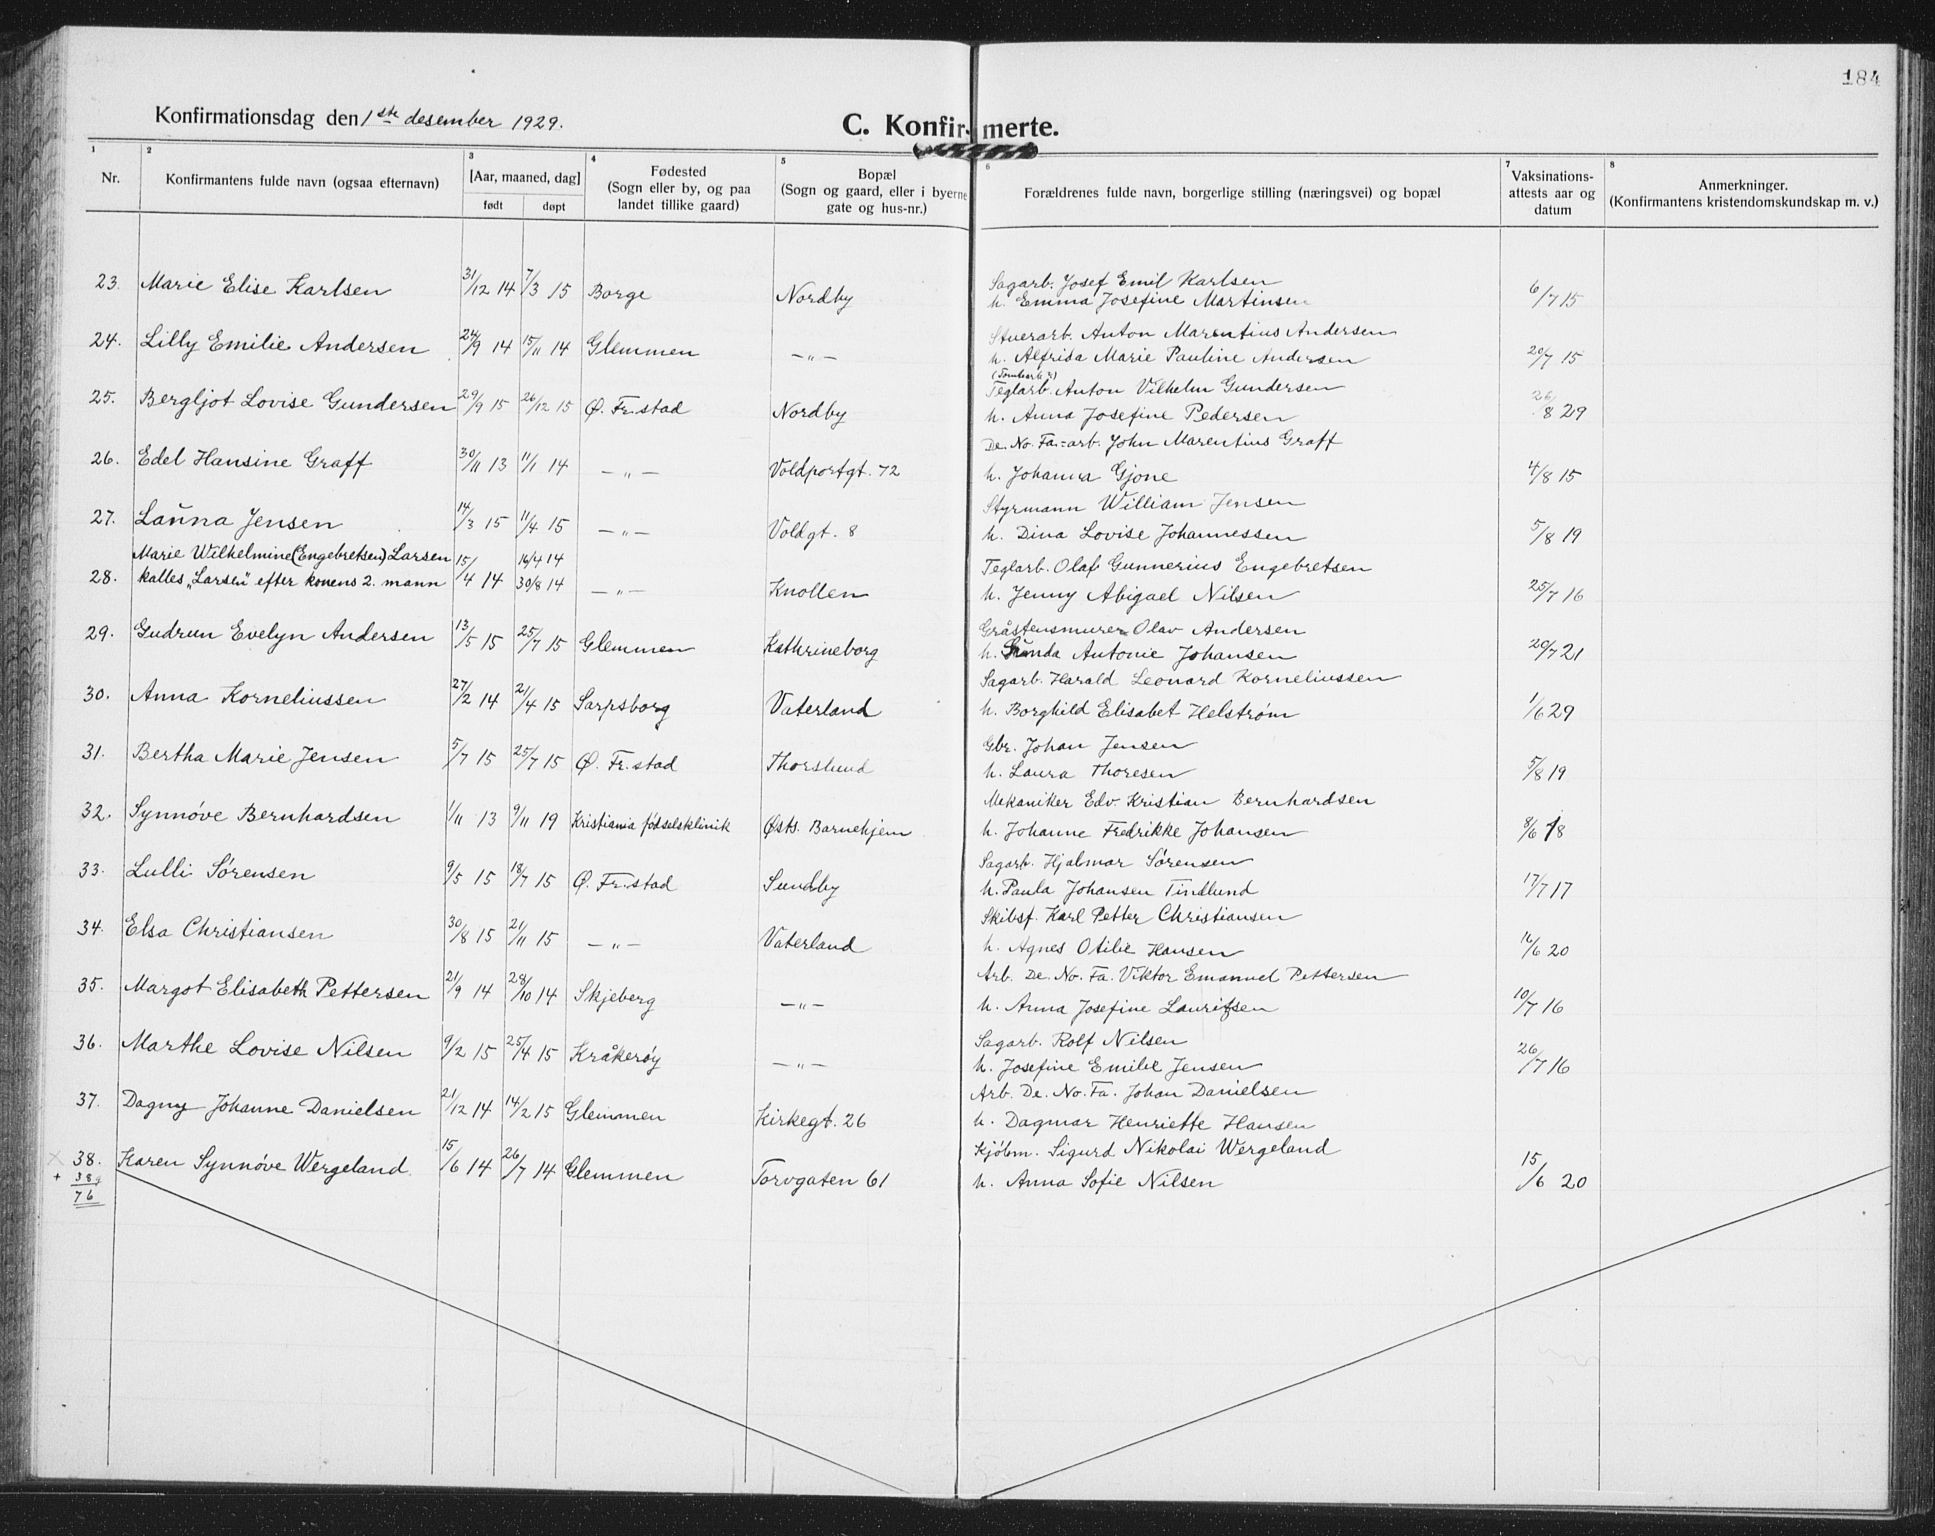 184
Konfirmationsdag den 1ste desember 1929.
C. Konfirmerte.
1 2 3 4 5 6 7 8
Nr. Konfirmantens fulde navn (ogsaa efternavn) [Aar, maaned, dag] født døpt Fødested (Sogn eller by, og paa landet tillike gaard) Bopæl (Sogn og gaard, eller i byerne gate og hus-nr.) Forældrenes fulde navn, borgerlige stilling (næringsvei) og bopæl Vaksinations-attests aar og datum Anmerkninger. (Konfirmantens kristendomskundskap m. v.)
23. Marie Elise Karlsen 31/12 14 7/3 15 Borge Nordby Sagarb. Josef Emil Karlsen
h. Emma Josefine Martinsen 6/7 15
24. Lilly Emilie Andersen 24/9 14 15/11 14 Glemmen —"— Stuerarb. Anton Marentius Andersen
h. Alfrida Marie Pauline Andersen 20/7 15
25. Bergljot Lovise Gundersen 29/9 15 26/12 15 Ø. Fr.stad Nordby Teglarb. Anton Vilhelm Gundersen
h. Anna Josefine Pedersen 26/8 29
26. Edel Hansine Graff 30/11 13 11/1 14 —"— Voldportgt. 72 De. No. Fa.-arb. John Marentius Graff
h. Johanna Gjone 4/8 15
27. Launa Jensen 14/3 15 11/4 15 —"— Voldgt. 8 Styrmann William Jensen
h. Dina Lovise Johannessen 5/8 19
Marie Wilhelmine (Engebretsen) Larsen 15/4 14 16/4 14 Teglarb. Olaf Gunnerius Engebretsen
28. kalles „Larsen" efter konens 2. mann 30/8 14 —"— Knollen h. Jenny Abigael Nilsen 25/7 16
29. Gudrun Evelyn Andersen 13/5 15 25/7 15 Glemmen Kathrineborg Gråstensmurer Olav Andersen
h. Antonie Johansen 20/7 21
30. Anna Korneliussen 27/2 14 21/4 15 Sarpsborg Vaterland Sagarb. Harald Leonard Korneliussen
h. Borghild Elisabet Helstrøm 1/6 29
31. Bertha Marie Jensen 5/7 15 25/7 15 Ø. Fr.stad Thorslund Gbr. Johan Jensen
h. Laura Thoresen 5/8 19
32. Synnöve Bernhardsen 1/11 13 9/11 19 Kristiania fødselsklinik Østs. Barnehjem Mekaniker Edv. Kristian Bernhardsen
h. Johanne Fredrikke Johansen 8/6 18
33. Lulli Sörensen 9/5 15 18/7 15 Ø. Fr.stad Sundby Sagarb. Hjalmar Sörensen
h. Paula Johansen Tindlund 17/7 17
34. Elsa Christiansen 30/8 15 21/11 15 —"— Vaterland Skibsf. Karl Petter Christiansen
h. Agnes Otilie Hansen 16/6 20
35. Margot Elisabeth Pettersen 21/9 14 28/10 14 Skjeberg —"— Arb. De. No. Fa. Viktor Emanuel Pettersen
h. Anna Josefine Lauritsen 10/7 16
36. Marthe Lovise Nilsen 9/2 15 25/4 15 Kråkerøy —"— Sagarb. Rolf Nilsen
h. Josefine Emilie Jensen 26/7 16
37. Dagny Johanne Danielsen 21/12 14 14/2 15 Glemmen Kirkegt. 26 Arb. De. No. Fa. Johan Danielsen
h. Dagmar Henriette Hansen
38. Karen Synnöve Wergeland 15/6 14 26/7 14 Glemmen Torvgaten 61 Kjöbm. Sigurd Nikolai Wergeland
h. Anna Sofie Nilsen 15/6 20
+ 38
76